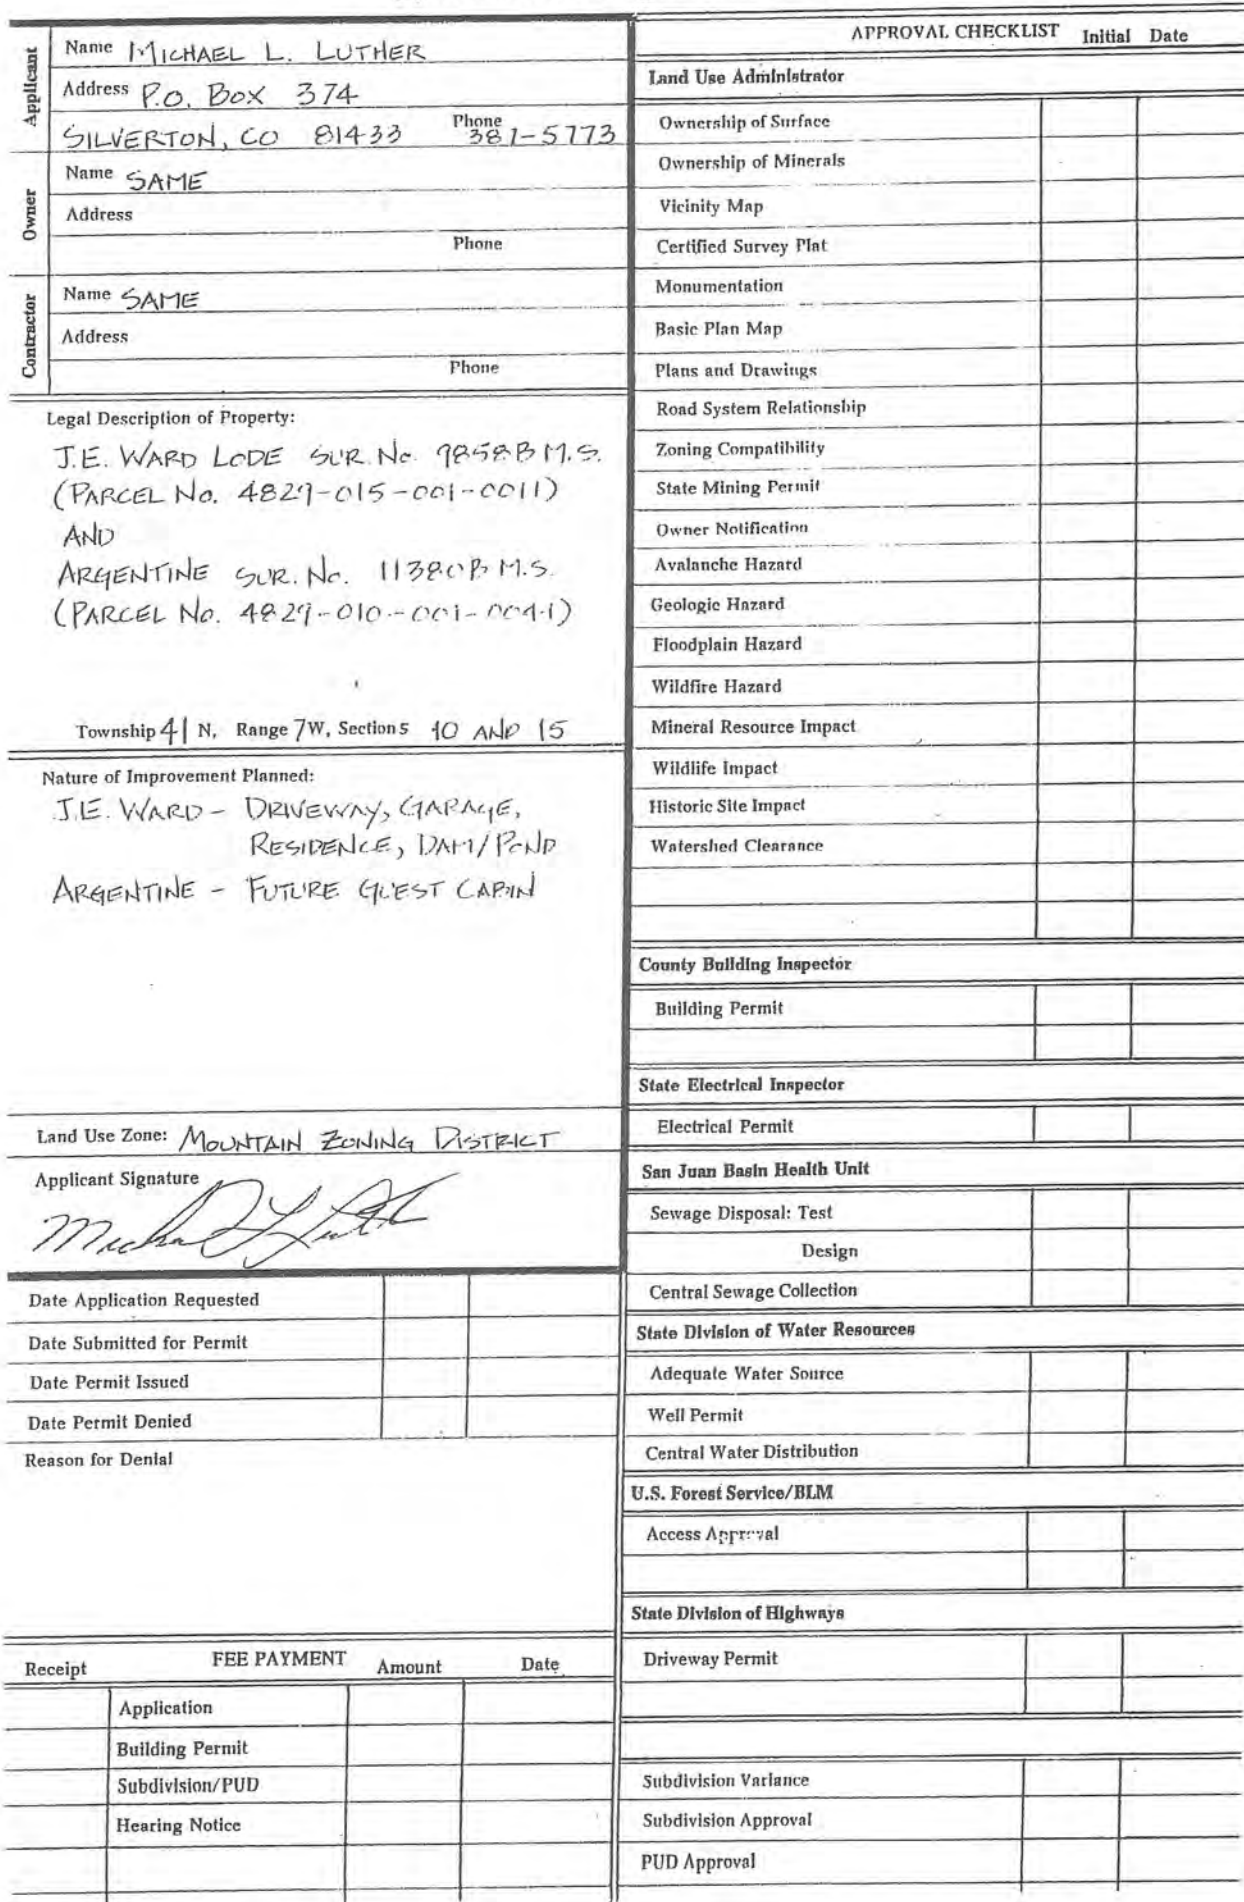 Applicant
Name MICHAEL L. LUTHER
Address P.O. BOX 374
SILVERTON, CO 81433 Phone 387-5773
Owner
Name SAME
Address
Phone
Contractor
Name SAME
Address
Phone
Legal Description of Property:
J.E. WARD LODE SUR. No. 9858B M.S.
(PARCEL No. 4829-015-001-0011)
AND
ARGENTINE SUR. No. 11380B M.S.
(PARCEL No. 4829-010-001-0041)
Township 41 N, Range 7W, Sections 10 AND 15
Nature of Improvement Planned:
J.E. WARD - DRIVEWAY, GARAGE,
RESIDENCE, DAM/POND
ARGENTINE - FUTURE GUEST CABIN
Land Use Zone: MOUNTAIN ZONING DISTRICT
Applicant Signature
Date Application Requested
Date Submitted for Permit
Date Permit Issued
Date Permit Denied
Reason for Denial
FEE PAYMENT
Receipt Amount Date
Application
Building Permit
Subdivision/PUD
Hearing Notice
APPROVAL CHECKLIST Initial Date
Land Use Administrator
Ownership of Surface
Ownership of Minerals
Vicinity Map
Certified Survey Plat
Monumentation
Basic Plan Map
Plans and Drawings
Road System Relationship
Zoning Compatibility
State Mining Permit
Owner Notification
Avalanche Hazard
Geologic Hazard
Floodplain Hazard
Wildfire Hazard
Mineral Resource Impact
Wildlife Impact
Historic Site Impact
Watershed Clearance
County Building Inspector
Building Permit
State Electrical Inspector
Electrical Permit
San Juan Basin Health Unit
Sewage Disposal: Test
Design
Central Sewage Collection
State Division of Water Resources
Adequate Water Source
Well Permit
Central Water Distribution
U.S. Forest Service/BLM
Access Approval
State Division of Highways
Driveway Permit
Subdivision Variance
Subdivision Approval
PUD Approval